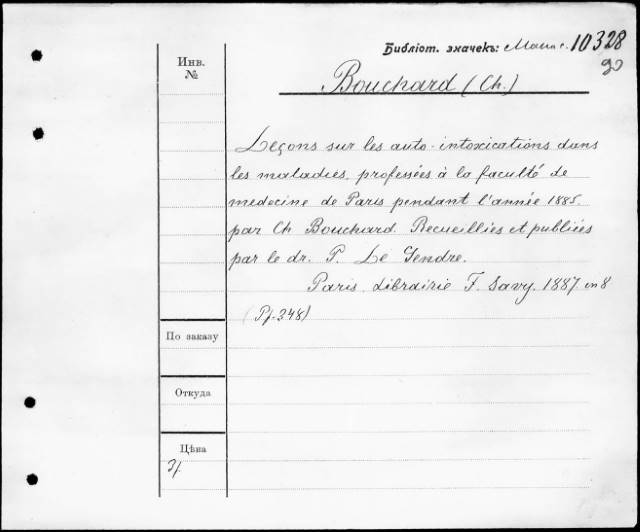 Библіот. значекъ: 10328
90
Инв.
№
Bouchard (Ch.)
Leçons sur les auto-intoxications dans
les maladies, professées à la faculté de
medecine de Paris pendant l'année 1885.
par Ch Bouchard. Recueillies et publiées
par le dr. P. Le Gendre.
Paris, Librairie F. Savy. 1887. in 8
(Pf. 348)
По заказу
Откуда
Цѣна